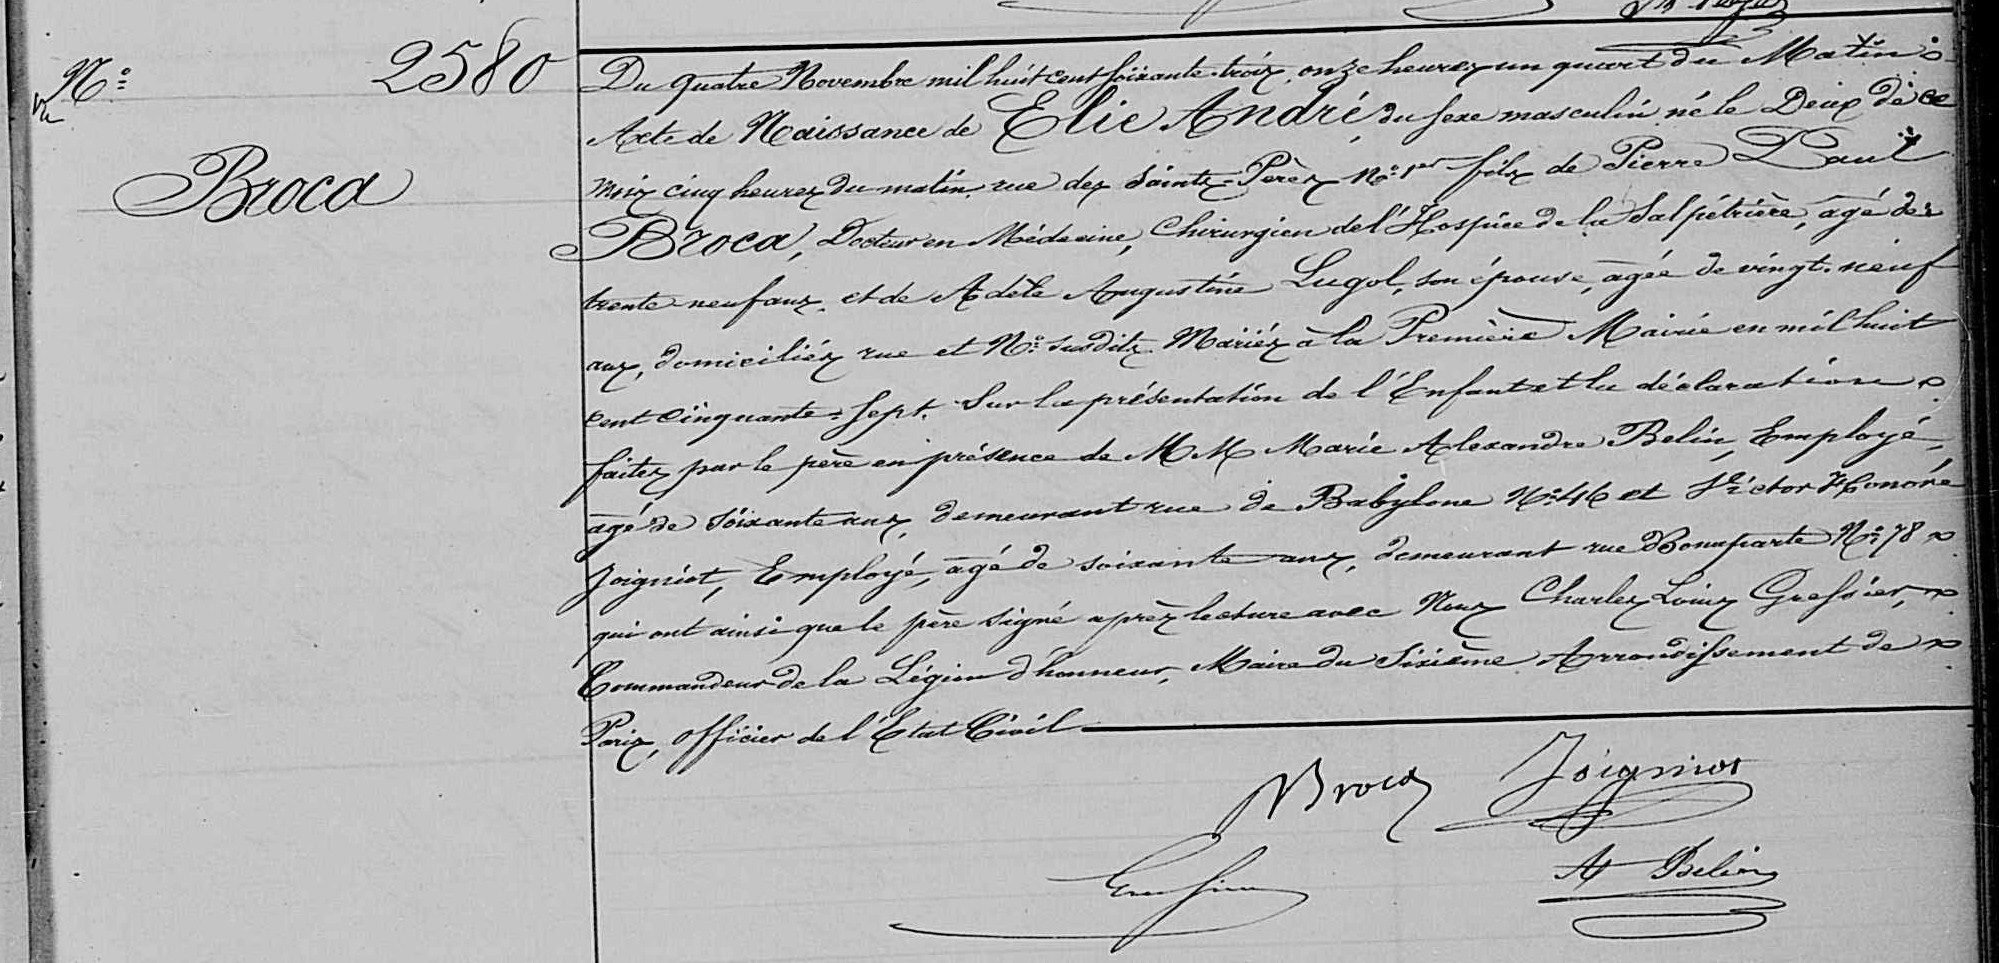 N°: 2580
Broca
Du quatre Novembre mil huit cent soixante-trois, onze heures un quart du Matin
Acte de Naissance de Elie André, du sexe masculin né le Deux de ce
mois cinq heures du matin, rue des Saints-Pères N°: 1er fils de Pierre Paul
Broca, Docteur en Médecine, Chirurgien de l'Hospice de la Salpétrière, âgé de
trente neuf ans, et de Adèle Augustine Lugol, son épouse, âgée de vingt-neuf
ans, domiciliés rue et N°: susdits. Mariés à la Première Mairie en mil huit
cent cinquante-sept. Sur la présentation de l'Enfant et la déclaration
faites par le père en présence de MM Marie Alexandre Belin, Employé,
âgé de soixante ans, demeurant rue de Babylone N°: 46 et Victor Honoré
Joigniot, Employé, âgé de soixante ans, demeurant rue Bonaparte N°: 78
qui ont ainsi que le père signé après lecture avec Nous Charles Louis Gressier,
Commandeur de la Légion d'honneur, Maire du Sixième Arrondissement de
Paris, officier de l'Etat Civil
Broca Joigniot
Gressier A Belin